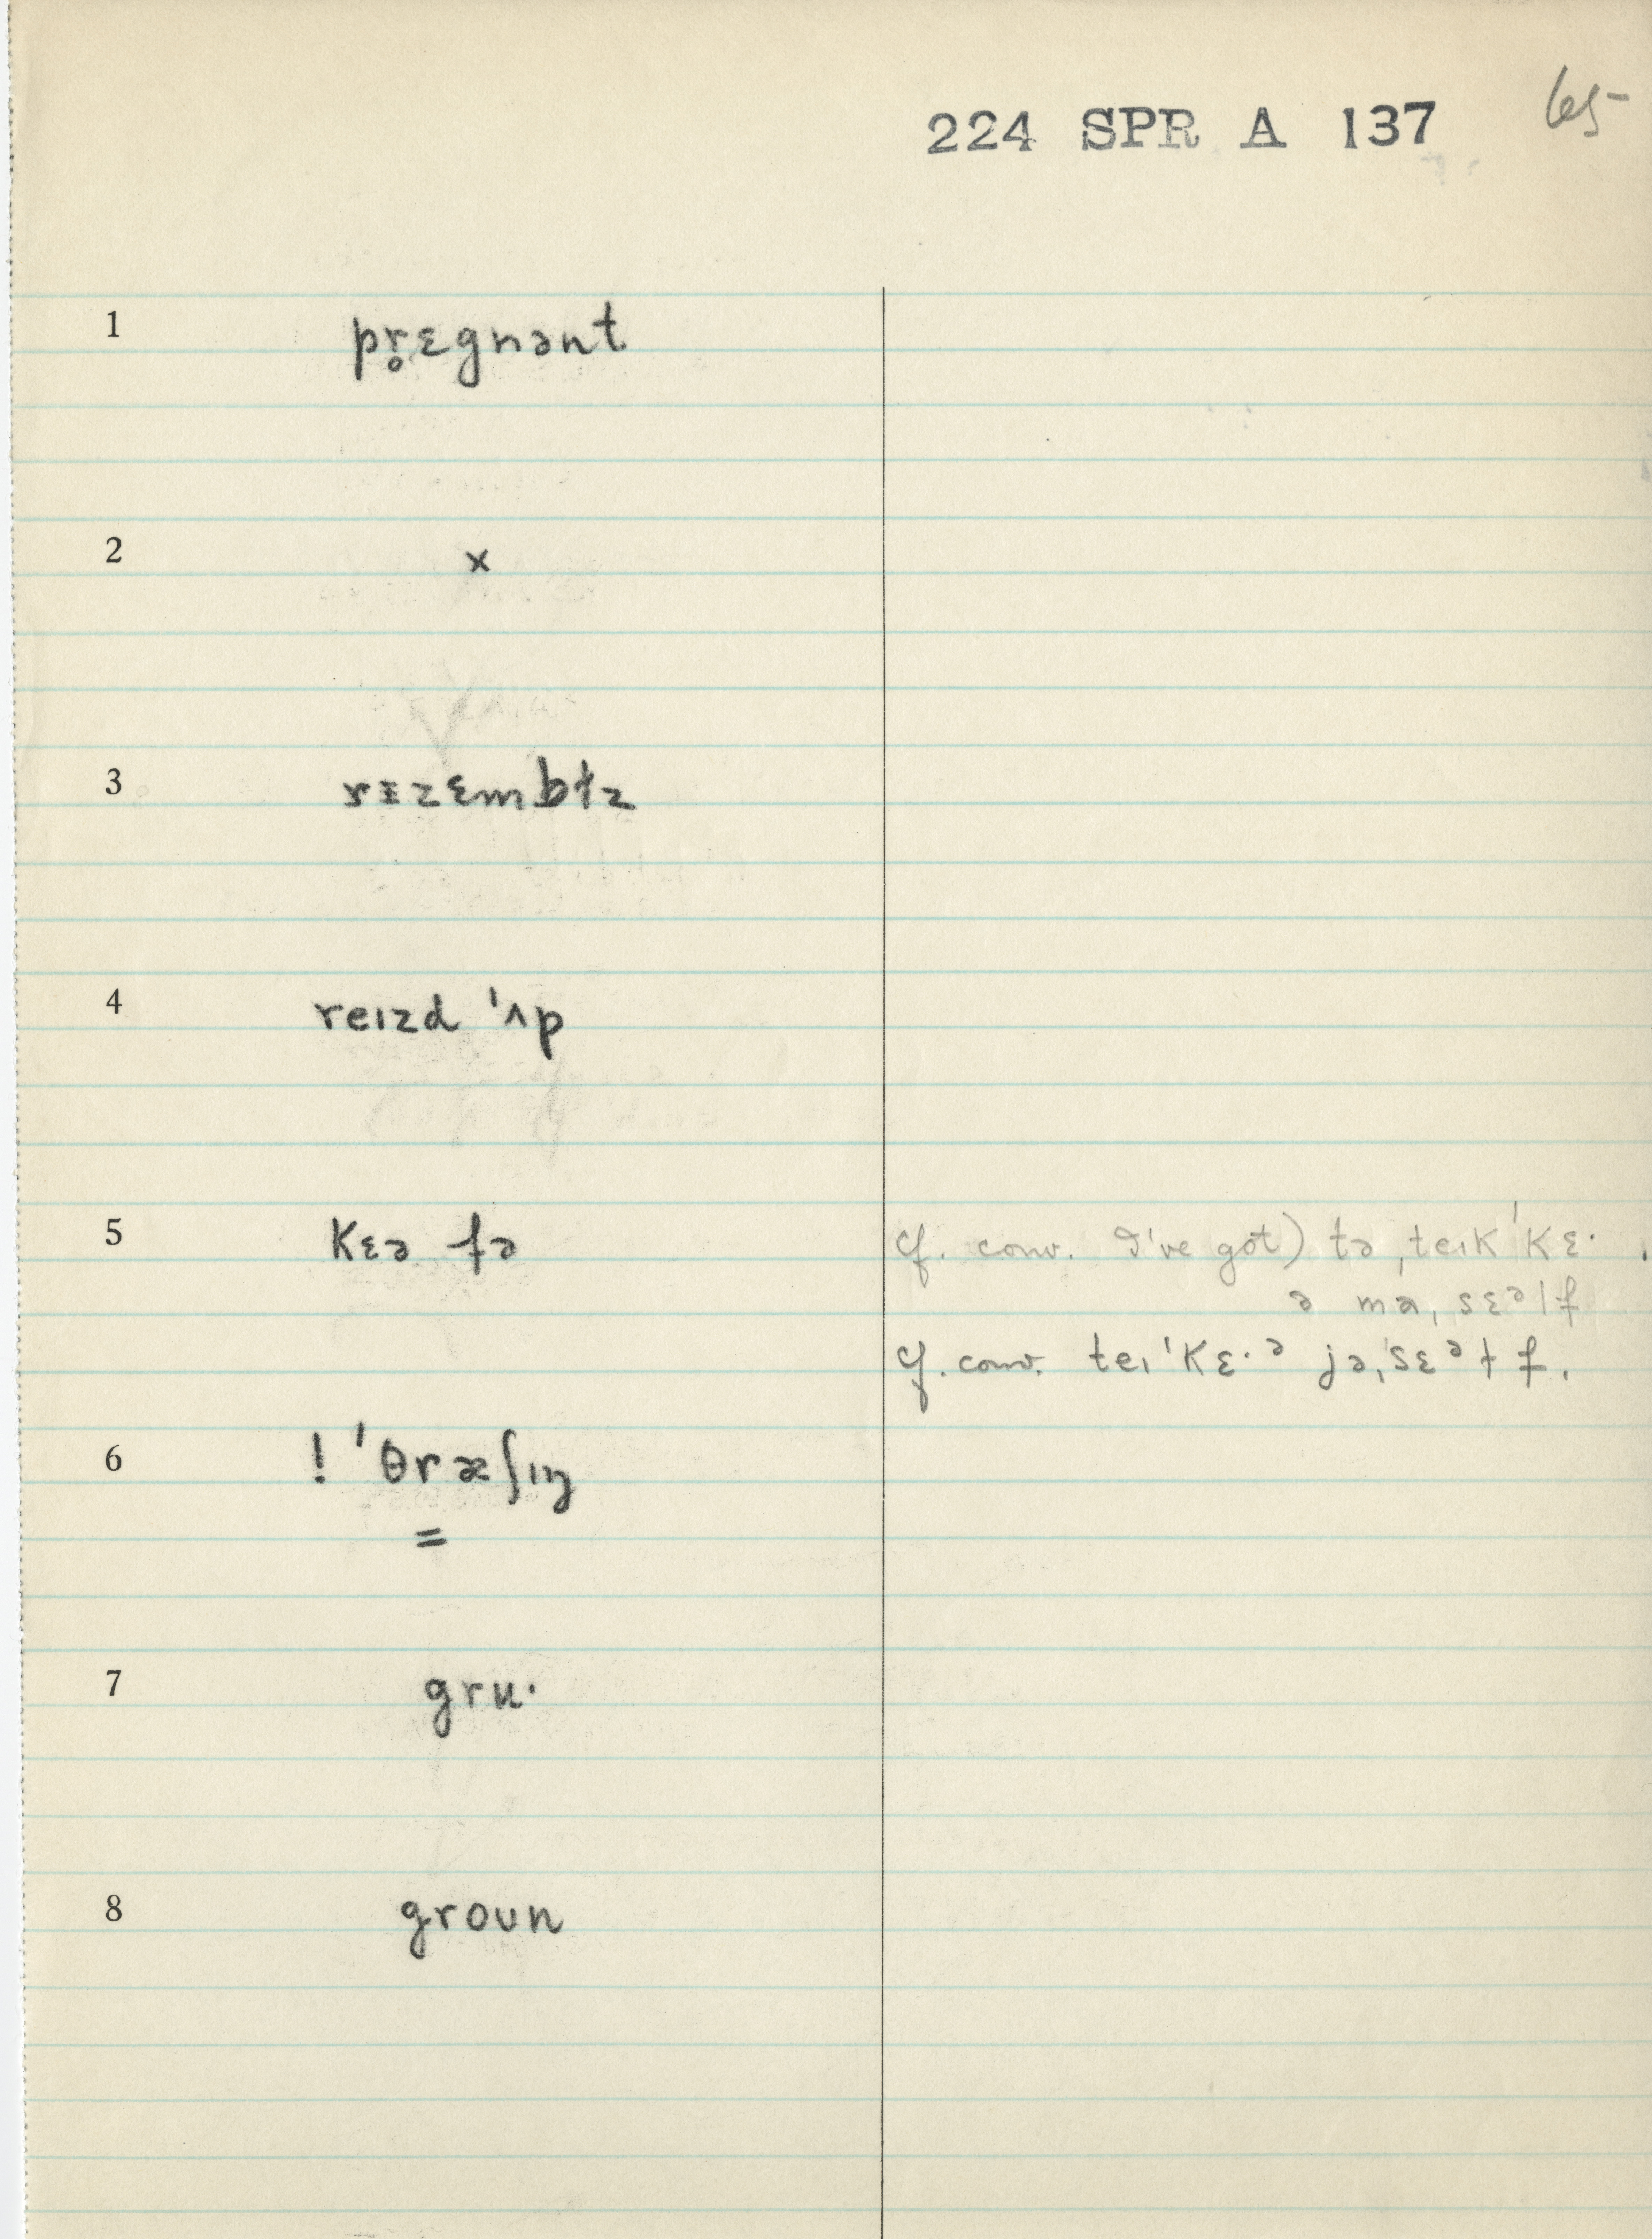 224 SPR A 137 65
1 pr̥ɛgnənt
2 x
3 rɪzɛmbɫz
4 reɪzd ˈʌp
5 kɛə fə
cf. conv. I've got) tə ˌteɪk ˈkɛ·
ə ma, sɛᵊlf
cf. conv. teɪ ˈkɛ·ᵊ jəˌsɛᵊɫf.
6 ! ˈθræʃɪŋ
=
7 gru·
8 groun